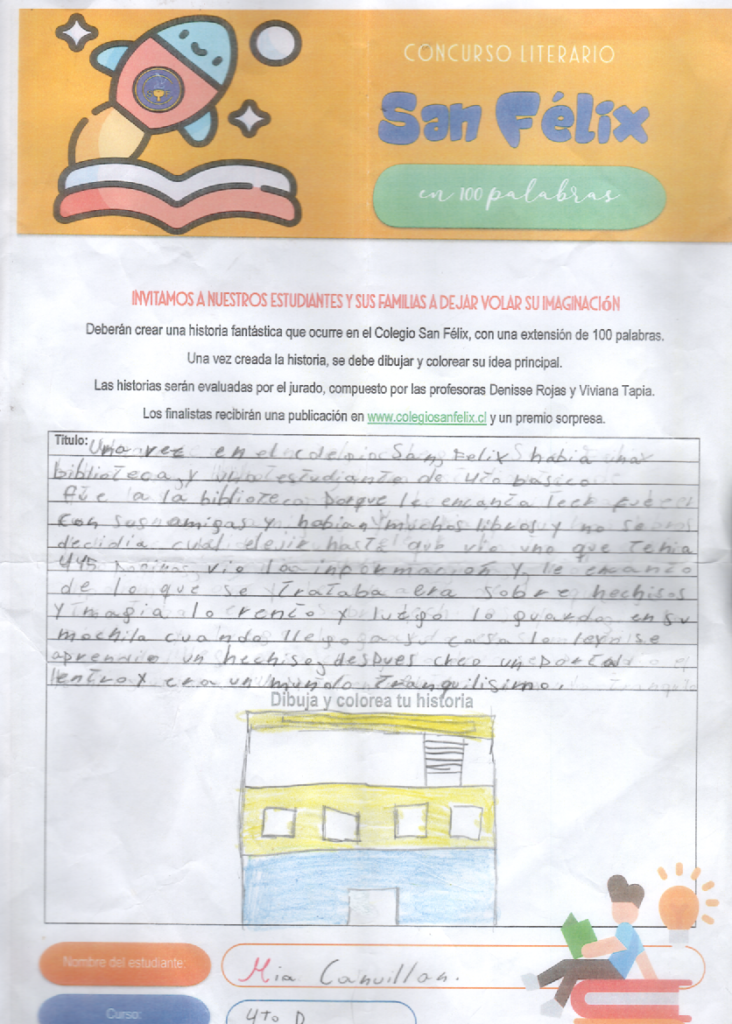 CONCURSO LITERARIO
San Félix
en 100 palabras
INVITAMOS A NUESTROS ESTUDIANTES Y SUS FAMILIAS A DEJAR VOLAR SU IMAGINACIÓN
Deberán crear una historia fantástica que ocurre en el Colegio San Félix, con una extensión de 100 palabras.
Una vez creada la historia, se debe dibujar y colorear su idea principal.
Las historias serán evaluadas por el jurado, compuesto por las profesoras Denisse Rojas y Viviana Tapia.
Los finalistas recibirán una publicación en www.colegiosanfelix.cl y un premio sorpresa.
Título: Una vez en el colegio San Felix había una
biblioteca y una estudiante de 4to basico
fue a la biblioteca porque le encanta leer fue
con sus amigas y habian muchos libros y no se
decidia cual elejir hasta que vio uno que tenia
445 vio la informacion y le encanto
de lo que se trataba era sobre hechisos
y magia lo rento y luego lo guardo en su
mochila cuando llego a su casa lo leyo se
aprendio un hechiso, despues creo un portal
entro y era un mundo tranquilisimo.
Dibuja y colorea tu historia
Nombre del estudiante: Mia
Curso: 4to D